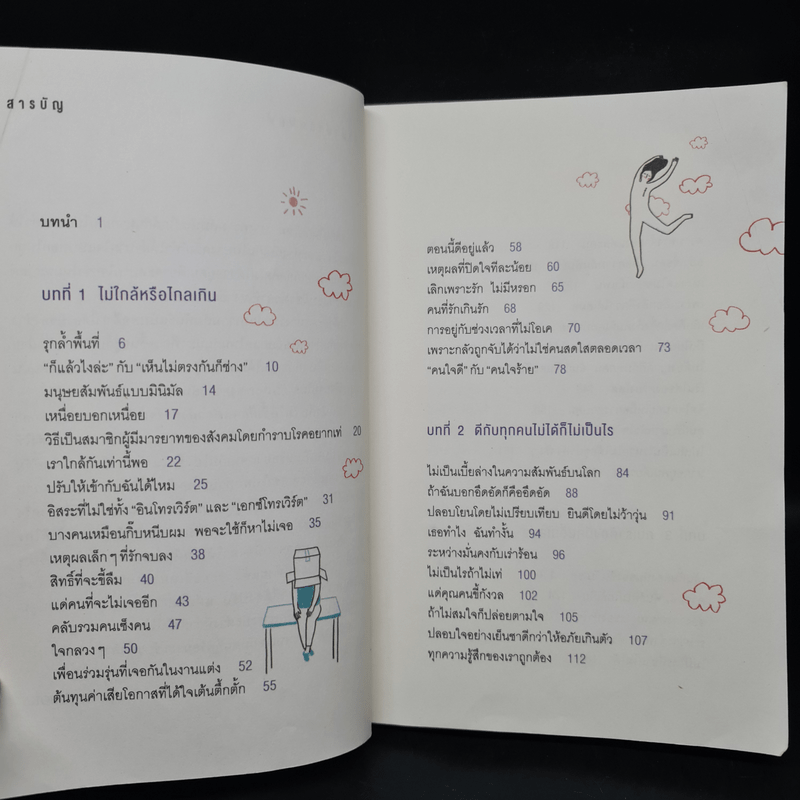 สารบัญ
บทนำ 1
บทที่ 1 ไม่ใกล้หรือไกลเกิน
รุกล้ำพื้นที่ 6
“ก็แล้วไงล่ะ” กับ “เห็นไม่ตรงกันก็ช่าง” 10
มนุษยสัมพันธ์แบบมินิมัล 14
เหนื่อยบอกเหนื่อย 17
วิธีเป็นสมาชิกผู้มีมารยาทของสังคมโดยกำราบโรคอยากเท่ 20
เราใกล้กันเท่านี้พอ 22
ปรับให้เข้ากับฉันได้ไหม 25
อิสระที่ไม่ใช่ทั้ง “อินโทรเวิร์ต” และ “เอกซ์โทรเวิร์ต” 31
บางคนเหมือนกิ๊บหนีบผม พอจะใช้ก็หาไม่เจอ 35
เหตุผลเล็ก ๆ ที่รักจบลง 38
สิทธิ์ที่จะขี้ลืม 40
แด่คนที่จะไม่เจออีก 43
คลับรวมคนเซ็งคน 47
ใจกลวง ๆ 50
เพื่อนร่วมรุ่นที่เจอกันในงานแต่ง 52
ต้นทุนค่าเสียโอกาสที่ได้ใจเต้นตึ้กตั้ก 55
ตอนนี้ดีอยู่แล้ว 58
เหตุผลที่ปิดใจทีละน้อย 60
เลิกเพราะรัก ไม่มีหรอก 65
คนที่รักเกินรัก 68
การอยู่กับช่วงเวลาที่ไม่โอเค 70
เพราะกลัวถูกจับได้ว่าไม่ใช่คนสดใสตลอดเวลา 73
“คนใจดี” กับ “คนใจร้าย” 78
บทที่ 2 ดีกับทุกคนไม่ได้ก็ไม่เป็นไร
ไม่เป็นเบี้ยล่างในความสัมพันธ์บนโลก 84
ถ้าฉันบอกอึดอัดก็คืออึดอัด 88
ปลอบโยนโดยไม่เปรียบเทียบ ยินดีโดยไม่ว้าวุ่น 91
เธอทำไง ฉันทำงั้น 94
ระหว่างมั่นคงกับเร่าร้อน 96
ไม่เป็นไรถ้าไม่เท่ 100
แด่คุณคนขี้กังวล 102
ถ้าไม่สมใจก็ปล่อยตามใจ 105
ปลอบใจอย่างเย็นชาดีกว่าให้อภัยเกินตัว 107
ทุกความรู้สึกของเราถูกต้อง 112